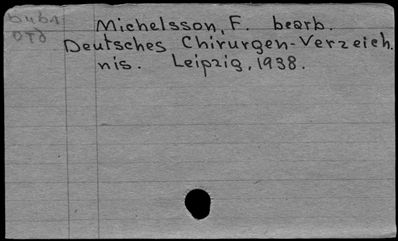 Michelsson, F. bearb.
Deutsches Chirurgen-Verzeich.
nis. Leipzig, 1938.